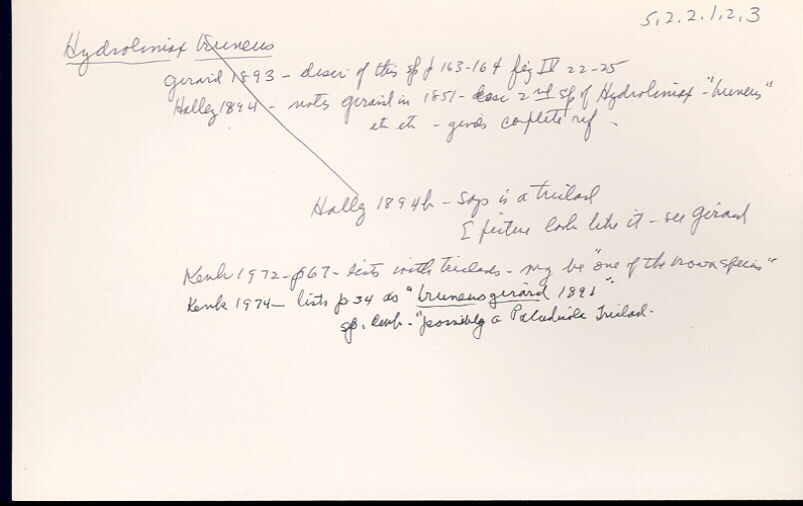 5.2.2.1.2.3
Hydrolimax bruneus
Girard 1893 - descr of this sp p 163-164 fig IV 22-25
Hallez 1894 - notes girard in 1851 - desc 2nd sp of Hydrolimax - "bruneus"
etc etc - gives complete ref.
Hallez 1894b - says is a triclad
& picture look like it - see Girard
Kenk 1972 - p67 - lists with triclads - may be "one of the brown species"
Kenk 1974 - lists p 34 as "bruneus girard 1891"
sp. dub. - "possibly a Paludicola Triclad.